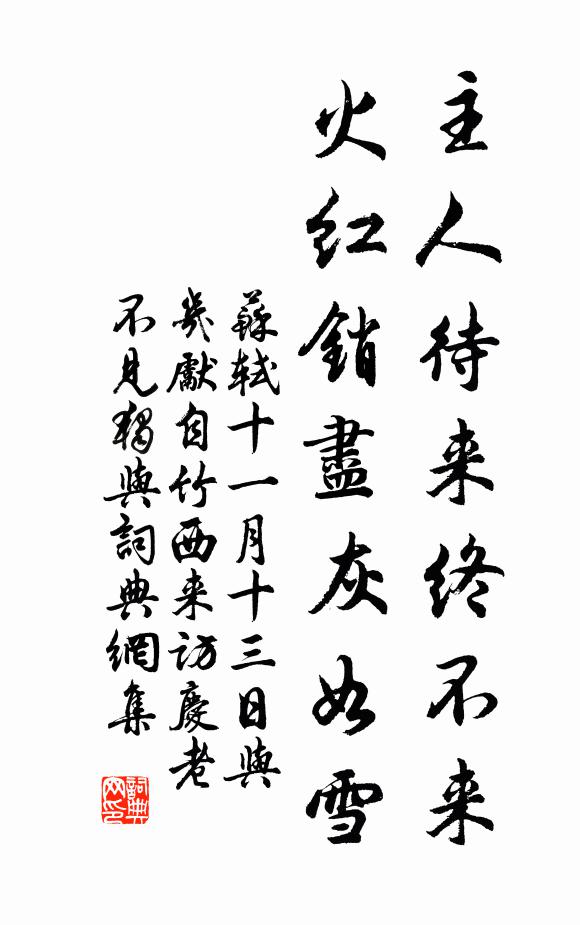 主人待来终不来
火红銷盡灰如雪
蘇軾十一月十三日與
幾獻自竹西来訪慶老
不見獨與詞典網集
詞典网印